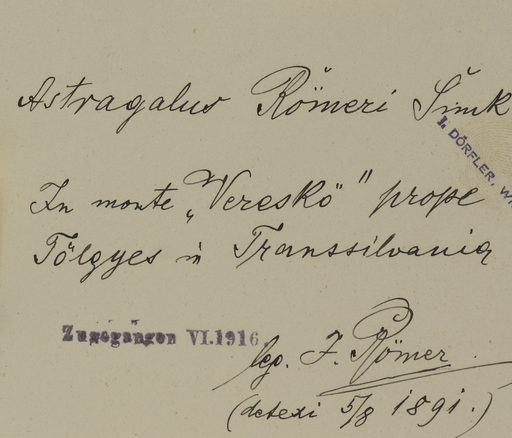 Astragalus Römeri Šimk
I. DÖRFLER, WI
In monte „Vereskö" prope
Tölgyes in Transsilvania
Zugegangen VI.1916
leg. J. Römer
(detexi 5/8 1891.)